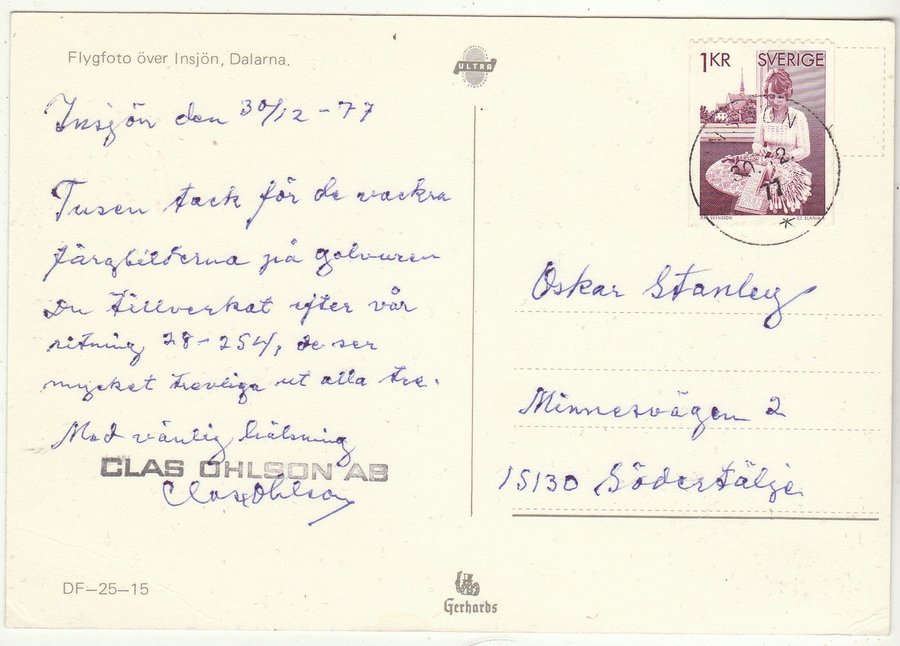 Flygfoto över Insjön, Dalarna.
ULTRA
1KR SVERIGE
INSJÖN
30 12
77
Insjön den 30/12-77
Tusen tack för de vackra
färgbilderna på golvuren
Du tillverkat efter vår
ritning 28-254, de ser
mycket trevliga ut alla tre.
Med vänlig hälsning
CLAS OHLSON AB
Clas Ohlson
Oskar Stanley
Minnesvägen 2
15130 Södertälje
DF-25-15
Gerhards